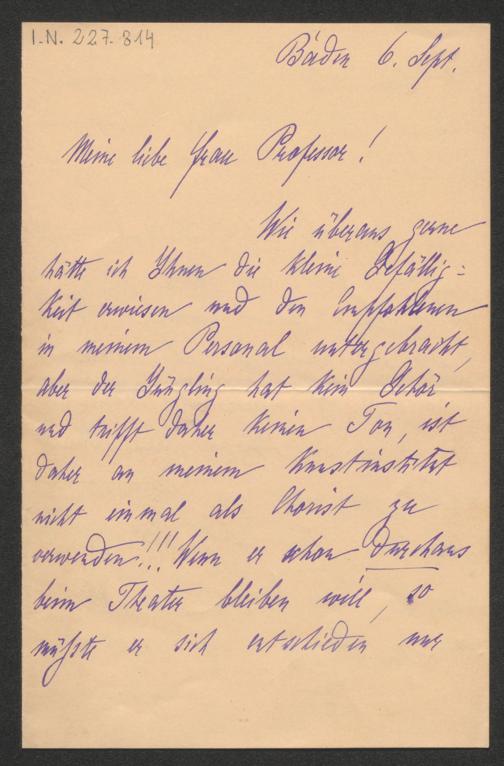 I.N. 227.814
Baden 6. Sept.
Meine liebe Frau Professor!
Wie überaus gerne
hätte ich Ihnen die kleine Gefällig=
keit erwiesen und den Empfohlenen
in meinem Personal untergebracht,
aber der Jüngling hat kein Gehör
und trifft daher keinen Ton, ist
daher an meinem Kunstinstitut
nicht einmal als Chorist zu
verwenden!!! Wenn er schon durchaus
beim Theater bleiben will, so
müßte er sich entschieden nur